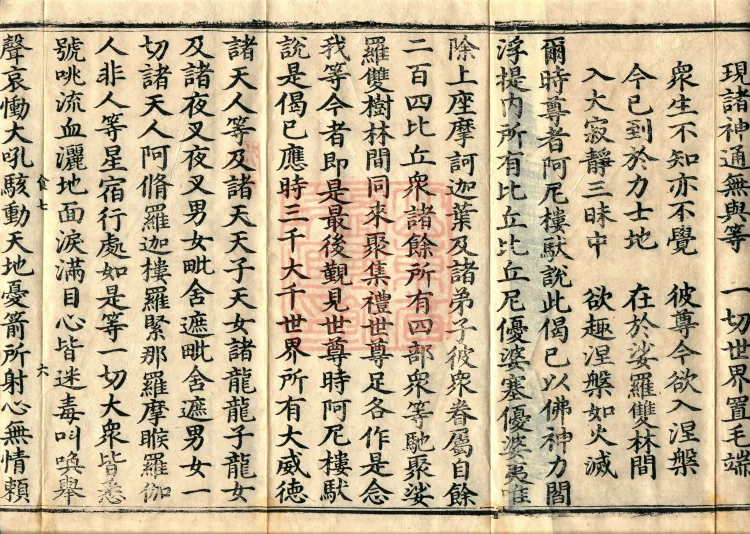 現諸神通無與等　一切世界置毛端
衆生不知亦不覺　彼尊今欲入涅槃
今已到於力士地　在於娑羅雙林間
入大寂靜三昧中　欲趣涅槃如火滅
爾時尊者阿尼樓馱說此偈已以佛神力閻
浮提內所有比丘比丘尼優婆塞優婆夷唯
除上座摩訶迦葉及諸弟子彼衆眷屬自餘
二百四比丘衆諸餘所有四部衆等馳聚娑
羅雙樹林間同來聚集禮世尊足各作是念
我等今者即是最後覲見世尊時阿尼樓馱
說是偈已應時三千大千世界所有大威德
諸天人等及諸天天子天女諸龍龍子龍女
及諸夜叉夜叉男女毗舍遮毗舍遮男女一
切諸天人阿脩羅迦樓羅緊那羅摩睺羅伽
人非人等星宿行處如是等一切大衆皆悉
號咷流血灑地面淚滿目心皆迷毒叫喚舉
食七　六
聲哀慟大吼駭動天地憂箭所射心無情賴